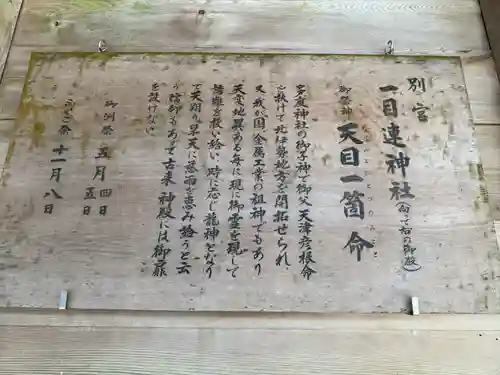 別宮
一目連神社(向って右の御殿)
御祭神 天目一箇命
あめのまひとつのみこと
多度神社の御子神で御父 天津彦根命
を扶けて北伊勢地方を開拓せられ、
又我が国、金属工業の祖神でもあり
天変地異ある毎に現に御霊を現して
諸難を救い給い、時に応じ龍神となり
て天翔り旱天に慈雨を恵み給うと云
う信仰もあって古来 神殿には御扉
を設けない。
御例祭 五月 四日
五日
ふいご祭 十一月 八日